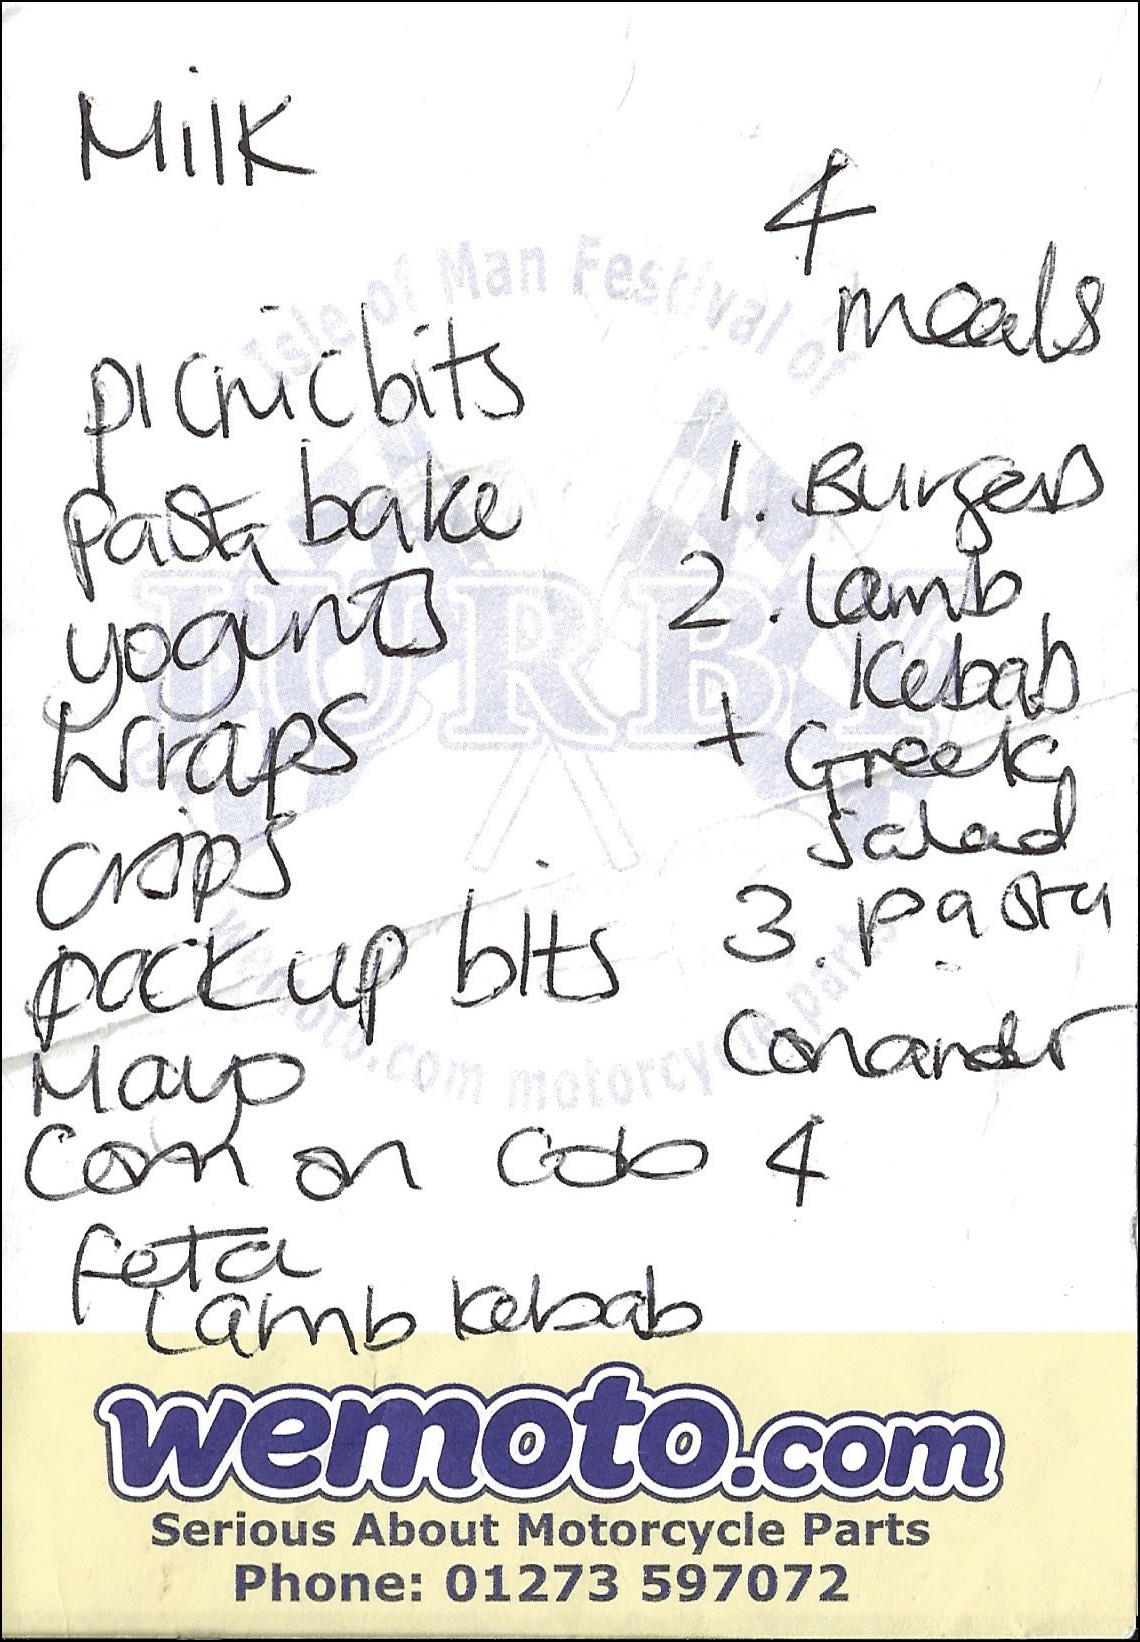 Milk
picnic bits
pasta bake
yogurts
Wraps
crisps
pack up bits
Mayo
Corn on Cob 4
feta
Lamb kebab
4
meals
1. Burgers
2. Lamb
Kebab
+ Greek
salad
3. pasta
Coriander
Isle of Man Festival of
JURBY
wemoto.com motorcycle parts
wemoto.com
Serious About Motorcycle Parts
Phone: 01273 597072